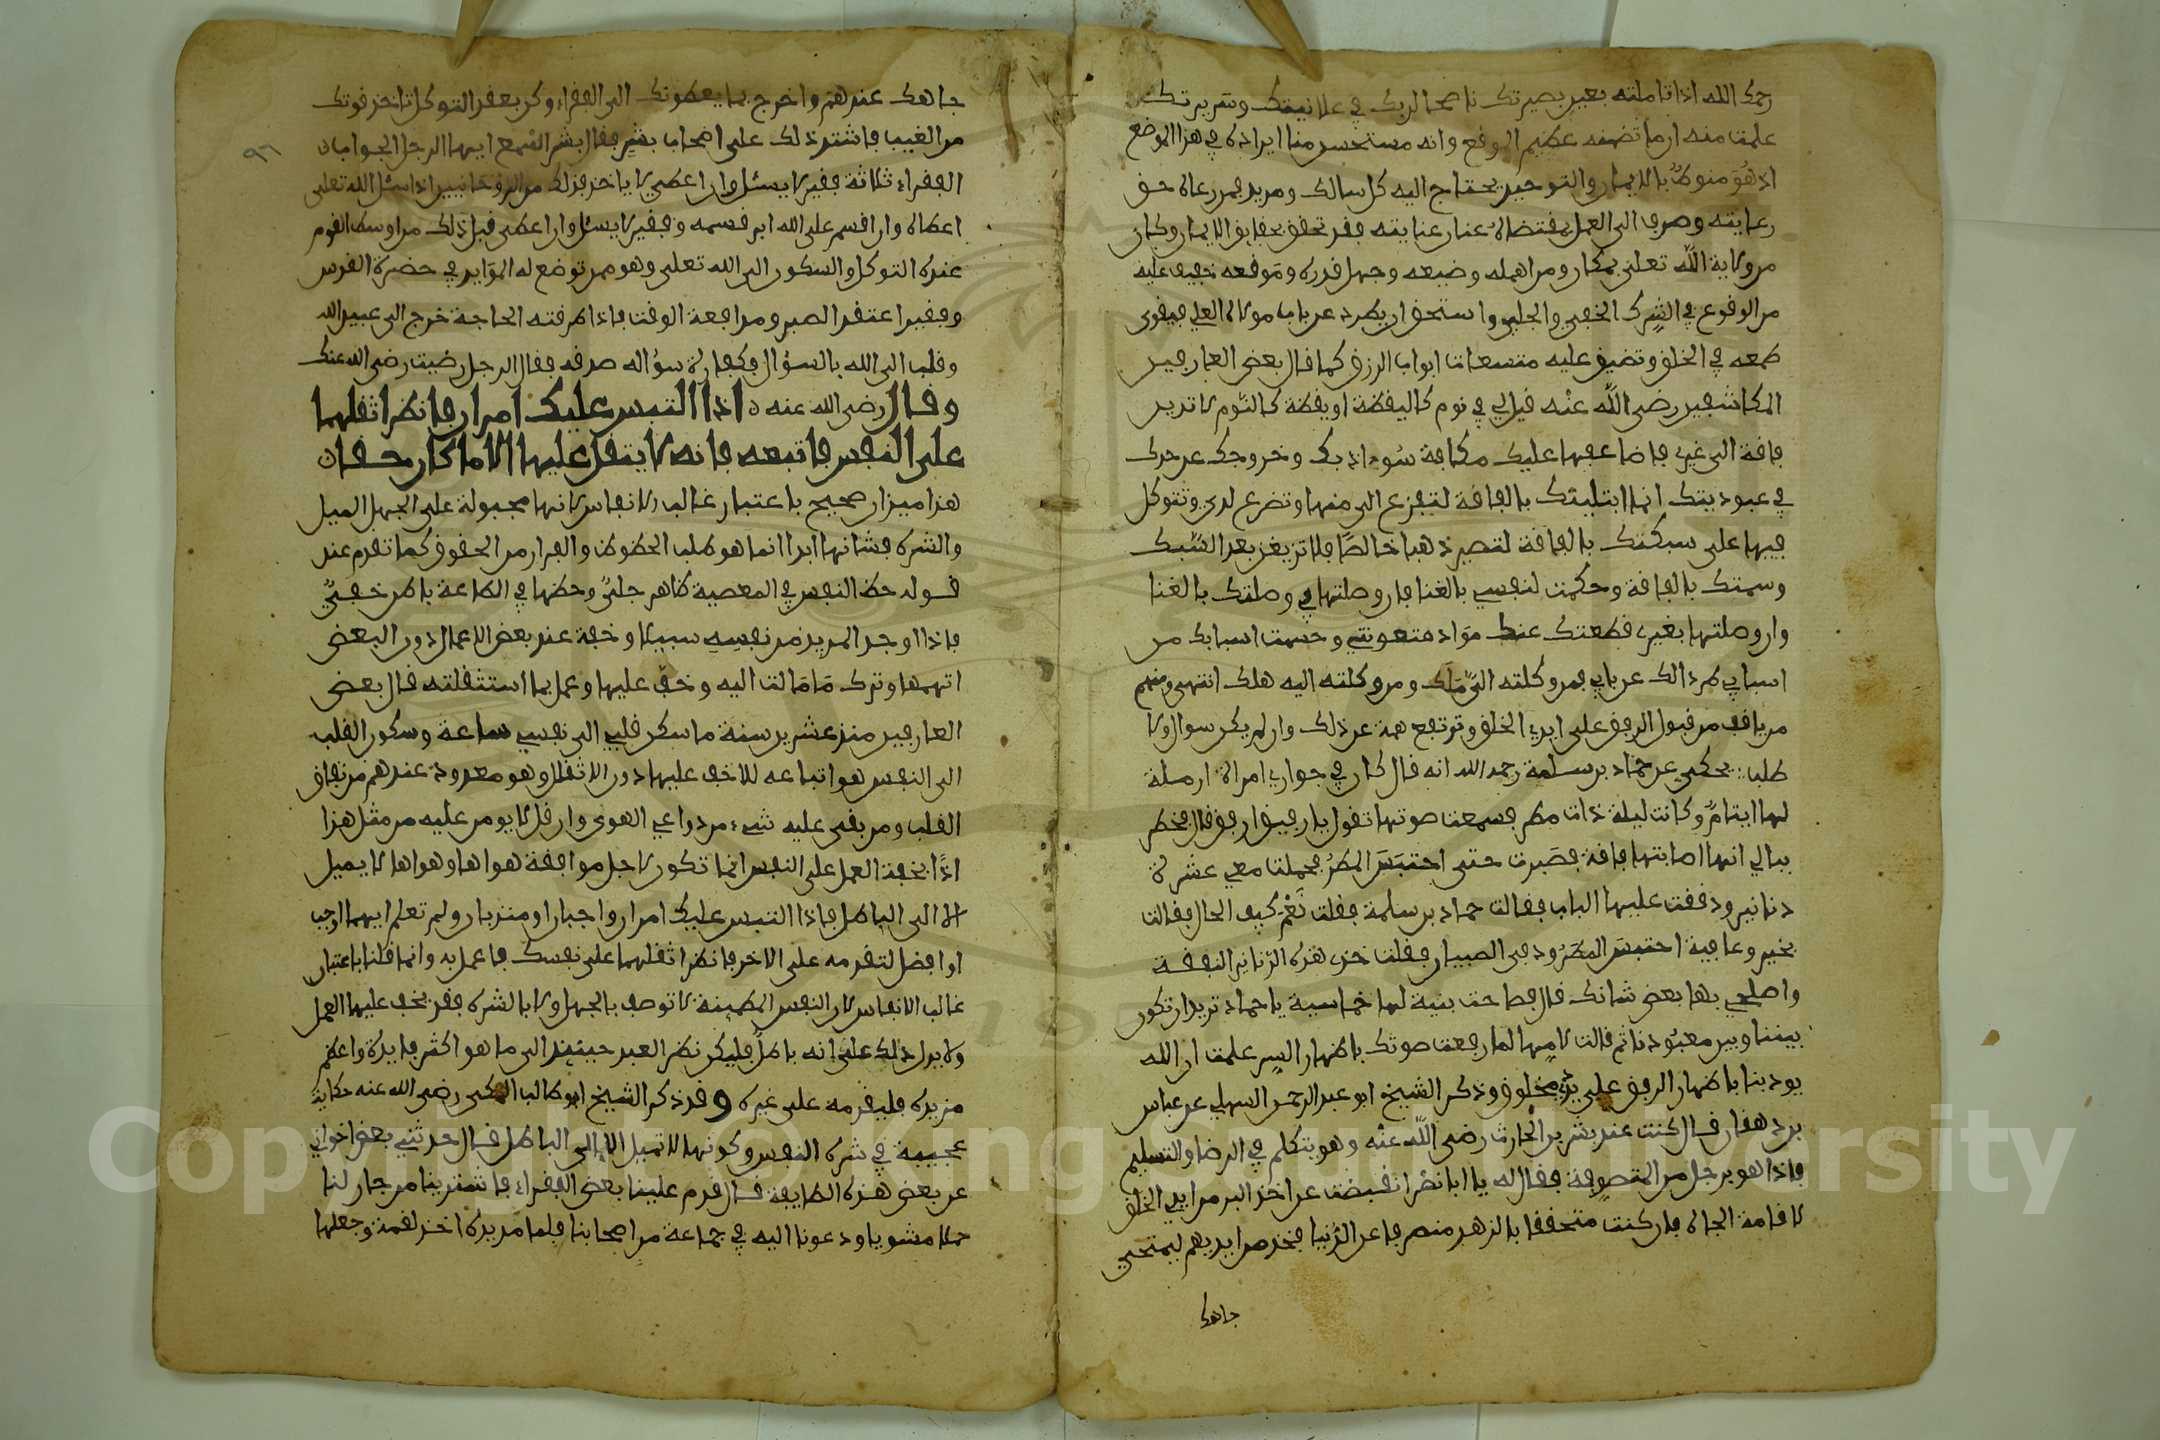 رحمك الله اذا تاملته بعين بصيرتك ناصحا لربك في علانيتك وسريرتك
علمت منه ان ما تضمنه عظيم الموقع وانه مستحسن منا ايراده في هذا الموضع
اذ هو منوط بالايمان والتوحيد يحتاج اليه كل سالك ومريد فمن رعاه حق
رعايته وصرف الى العمل بمقتضاه عنان عنايته فقد تحقق بحقايق الايمان وكان
من ولاية الله تعلى بمكان ومن اهمله وضيعه وجهل قدره وموقعه خيف عليه
من الوقوع في الشرك الخفي والجلي واستحق ان يطرد عن باب مولاه العلي فيقوى
طمعه في الخلق وتضيق عليه متسعات ابواب الرزق كما قال بعض العارفين
المكاشفين رضي الله عنه قيل لي في نوم كاليقظة او يقظة كالنوم لا تبدين
فاقة الى غيري فاضاعفها عليك مكافاة سوء ادبك وخروجك عن حدك
في عبوديتك انما ابتليتك بالفاقة لتفزع الي منها وتضرع لدي وتتوكل
فيها علي سبكتك بالفاقة لتصير ذهبا خالصا فلا تزيغن بعد السبك
وسمتك بالفاقة وحكمت لنفسي بالغنا فان وصلتها بي وصلتك بالغنا
وان وصلتها بغيري قطعتك عنك مواد معونتي وحسمت اسبابك من
اسبابي طردا لك عن بابي فمن وكلته الي ملك ومن وكلته اليه هلك انتهى ومنهم
من يانف من قبول الرفق على ايدي الخلق وترتفع همته عن ذلك وان لم يكن سوال ولا
طلب يحكى عن حماد بن سلمة رحمه الله انه قال كان في جواري امراة ارملة
لها ايتام وكانت ليلة ذات مطر فسمعت صوتها تقول يا رفيق ارفق قال فخطر
ببالي انها اصابتها فاقة فصبرت حتى احتبس المطر فحملت معي عشرة
دنانير ودققت عليها الباب فقالت حماد بن سلمة فقلت نعم كيف الحال فقالت
بخير وعافية احتبس المطر ودفى الصبيان فقلت خذي هذه الدنانير النفقة
واصلحي بها بعض شانك قال فصاحت بنية لها خماسية يا حماد تريد ان تكون
بيننا وبين معبودنا ثم قالت لامها لما رفعت صوتك باظهار السر علمت ان الله
يودبنا باظهار الرفق على يدي مخلوق وذكر الشيخ ابو عبد الرحمن السهلي عن عباس
بن دهقان قال كنت عند بشر بن الحارث رضي الله عنه وهو يتكلم في الرضا والتسليم
فاذا هو برجل من المتصوفة فقال له يا ابا نصر انقبضت عن اخذ البر من ايدي الخلق
لاقامة الجاه فان كنت متحققا بالزهد منصرفا عن الدنيا فخذ من ايديهم ليمتحي
جاهك
جاهك عندهم واخرج بما يعطونك الى الفقراء وكن بعقد التوكل تاخذ قوتك
من الغيب فاشتد ذلك على اصحاب بشر فقال بشر اسمع ايها الرجل الجواب
٩٦
الفقراء ثلاثة فقير لا يسئل وان اعطي لا ياخذ فذلك من الروحانيين اذا سئل الله تعلى
اعطاه وان اقسم على الله ابر قسمه وفقير لا يسئل وان اعطي قبل ذلك من اوسط القوم
عنده التوكل والسكون الى الله تعلى وهو ممن توضع له الموايد في حضرة القدس
وفقير اعتقد الصبر ومدافعة الوقت فاذا طرقته الحاجة خرج الى عبيد الله
وقلبه الى الله بالسؤال فكفارة سؤاله صدقه فقال الرجل رضيت رضي الله عنك
وقال رضي الله عنه اذا التبس عليك امران فانظر اثقلهما
على النفس فاتبعه فانه لا يثقل عليها الا ما كان حقا
هذا ميزان صحيح باعتبار غالب الانفاس لانها مجبولة على الجهل الميل
والشره فشانها ابدا انما هو طلب الحظوظ والفرار من الحقوق كما تقدم عند
قوله حظ النفس في المعصية ظاهر جلي وحظها في الطاعة باطن خفي
فاذا اوجد المريد من نفسه سببها وخفة عند بعض الاعمال دون البعض
اتهمها وترك ما مالت اليه وخف عليها وعمل بما استثقلته قال بعض
العارفين منذ عشرين سنة ما سكن قلبي الى نفسي ساعة وسكون القلب
الى النفس هو اتباعه للاخف عليها دون الاثقل وهو معدود عندهم من نفاق
القلب ومن بقي عليه شيء من دواعي الهوى وان قل لا يومن عليه من مثل هذا
اذا بخفة العمل على النفس انما تكون لاجل موافقة هواها وهواها لا يميل
الا الى الباطل فاذا التبس عليك امران واجبان او مندوبان ولم تعلم ايهما اوجب
او افضل لتقدمه على الاخر فانظر اثقلهما على نفسك فاعمل به وانما قلنا باعتبار
غالب الانفاس لان النفس المطمينة لا توصف بالجهل ولا بالشره فقد يخف عليها العمل
ولا يدل ذلك على انه باطل فليكن نظر العبد حينيذ الى ما هو اكثر فايدة واعظم
مزيدة فليقدمه على غيره وقد ذكر الشيخ ابو طالب المكي رضي الله عنه حكاية
عجيبة في شره النفس وكونها لا تميل الا الى الباطل قال حدثني بعض اخواني
عن بعض هذه الطايفة قال قدم علينا بعض الفقراء فاشترينا من جار لنا
حملا مشويا ودعونا اليه في جماعة من اصحابنا فلما مد يده اخذ لقمة وجعلها
Copyright © King Saud University